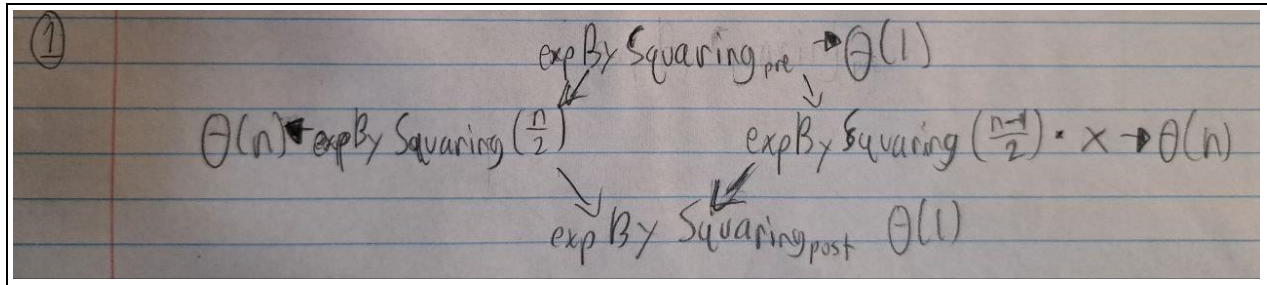 ① expBy Squaring_pre → Θ(1)
Θ(n) ← expBy Squaring (n/2) expBy Squaring ((n-1)/2) · x → Θ(n)
exp By Squaring_post Θ(1)